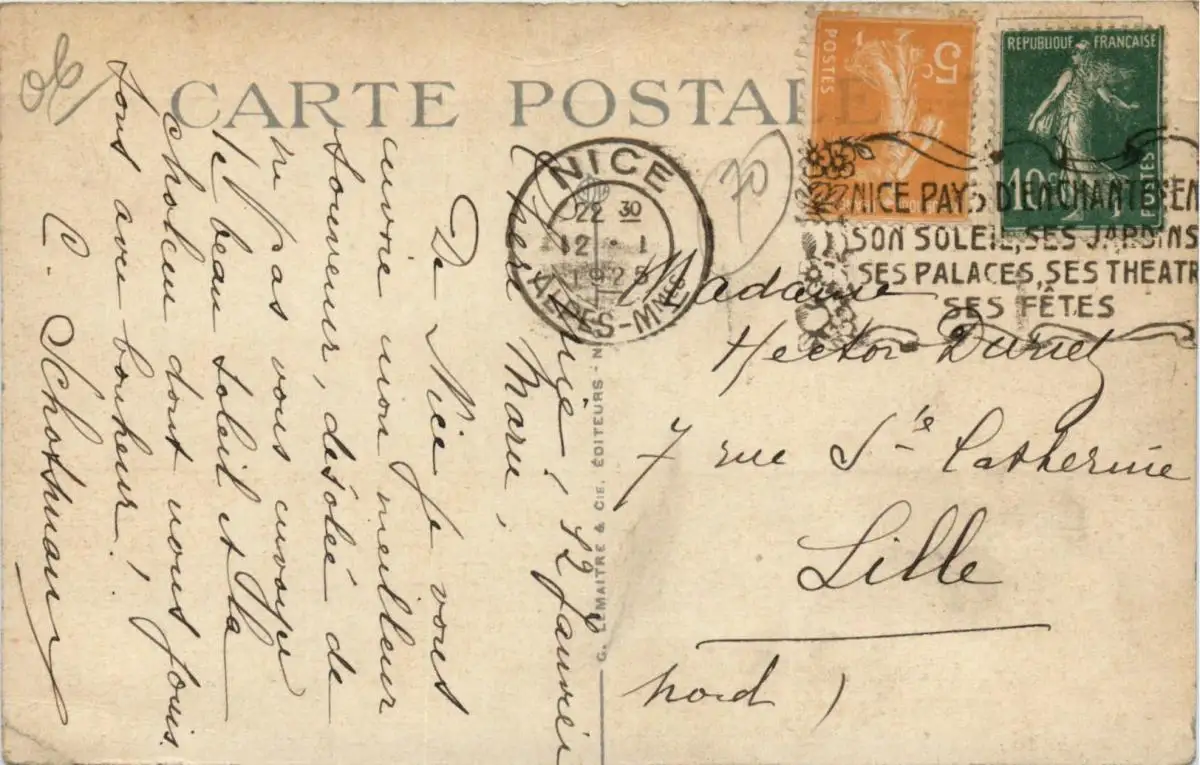 CARTE POSTALE
5 c
POSTES
REPUBLIQUE FRANÇAISE
10 c
POSTES
NICE
22 30
12 · 1
1925
ALPES-MMES
NICE PAYS D'ENCHANTE
SON SOLEIL, SES JARDINS
SES PALACES, SES THEATR
SES FÊTES
70
G. LEMAITRE & CIE, ÉDITEURS - N
12 Janvier
Marie,
De Nice je vous
envoie mon meilleur
souvenir, désolée de
ne pas vous envoyer
le beau soleil et la
chaleur dont nous jouis
sons avec bonheur.
C. Schotsmans
Madame
Hector
7 rue Ste Catherine
Lille
Nord)